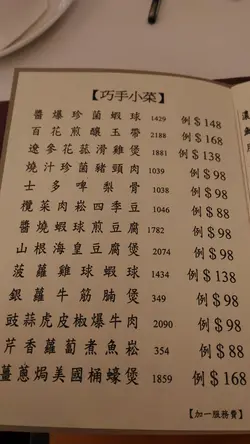 【巧手小菜】
醬爆珍菌蝦球 1429 例 $ 148
百花煎釀玉帶 2188 例 $ 168
遼參花菇滑雞煲 1881 例 $ 138
燒汁珍菌豬頸肉 1039 例 $ 98
士多啤梨骨 1038 例 $ 98
欖菜肉崧四季豆 1046 例 $ 88
醬燒蝦球煎豆腐 1782 例 $ 98
山根海皇豆腐煲 2074 例 $ 98
菠蘿雞球蝦球 1434 例 $ 138
銀蘿牛筋腩煲 349 例 $ 98
豉蒜虎皮椒爆牛肉 2090 例 $ 98
芹香蘿蔔煮魚崧 354 例 $ 88
薑蔥焗美國桶蠔煲 1859 例 $ 168
【加一服務費】